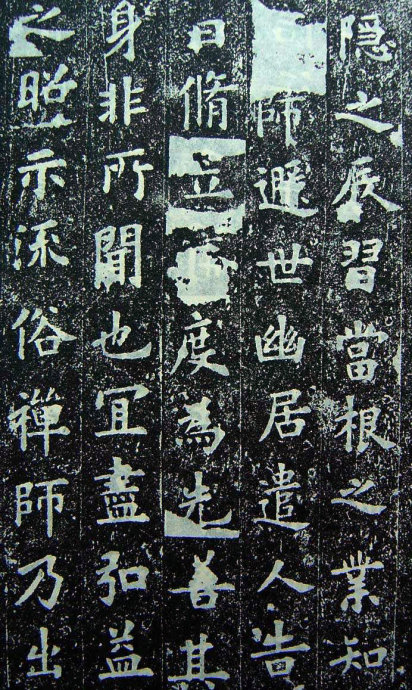 隐之辰習當根之業知
師遯世幽居遣人告
曰脩立濟度為先善其
身非所聞也宜盡弘益
之照示流俗禪師乃出